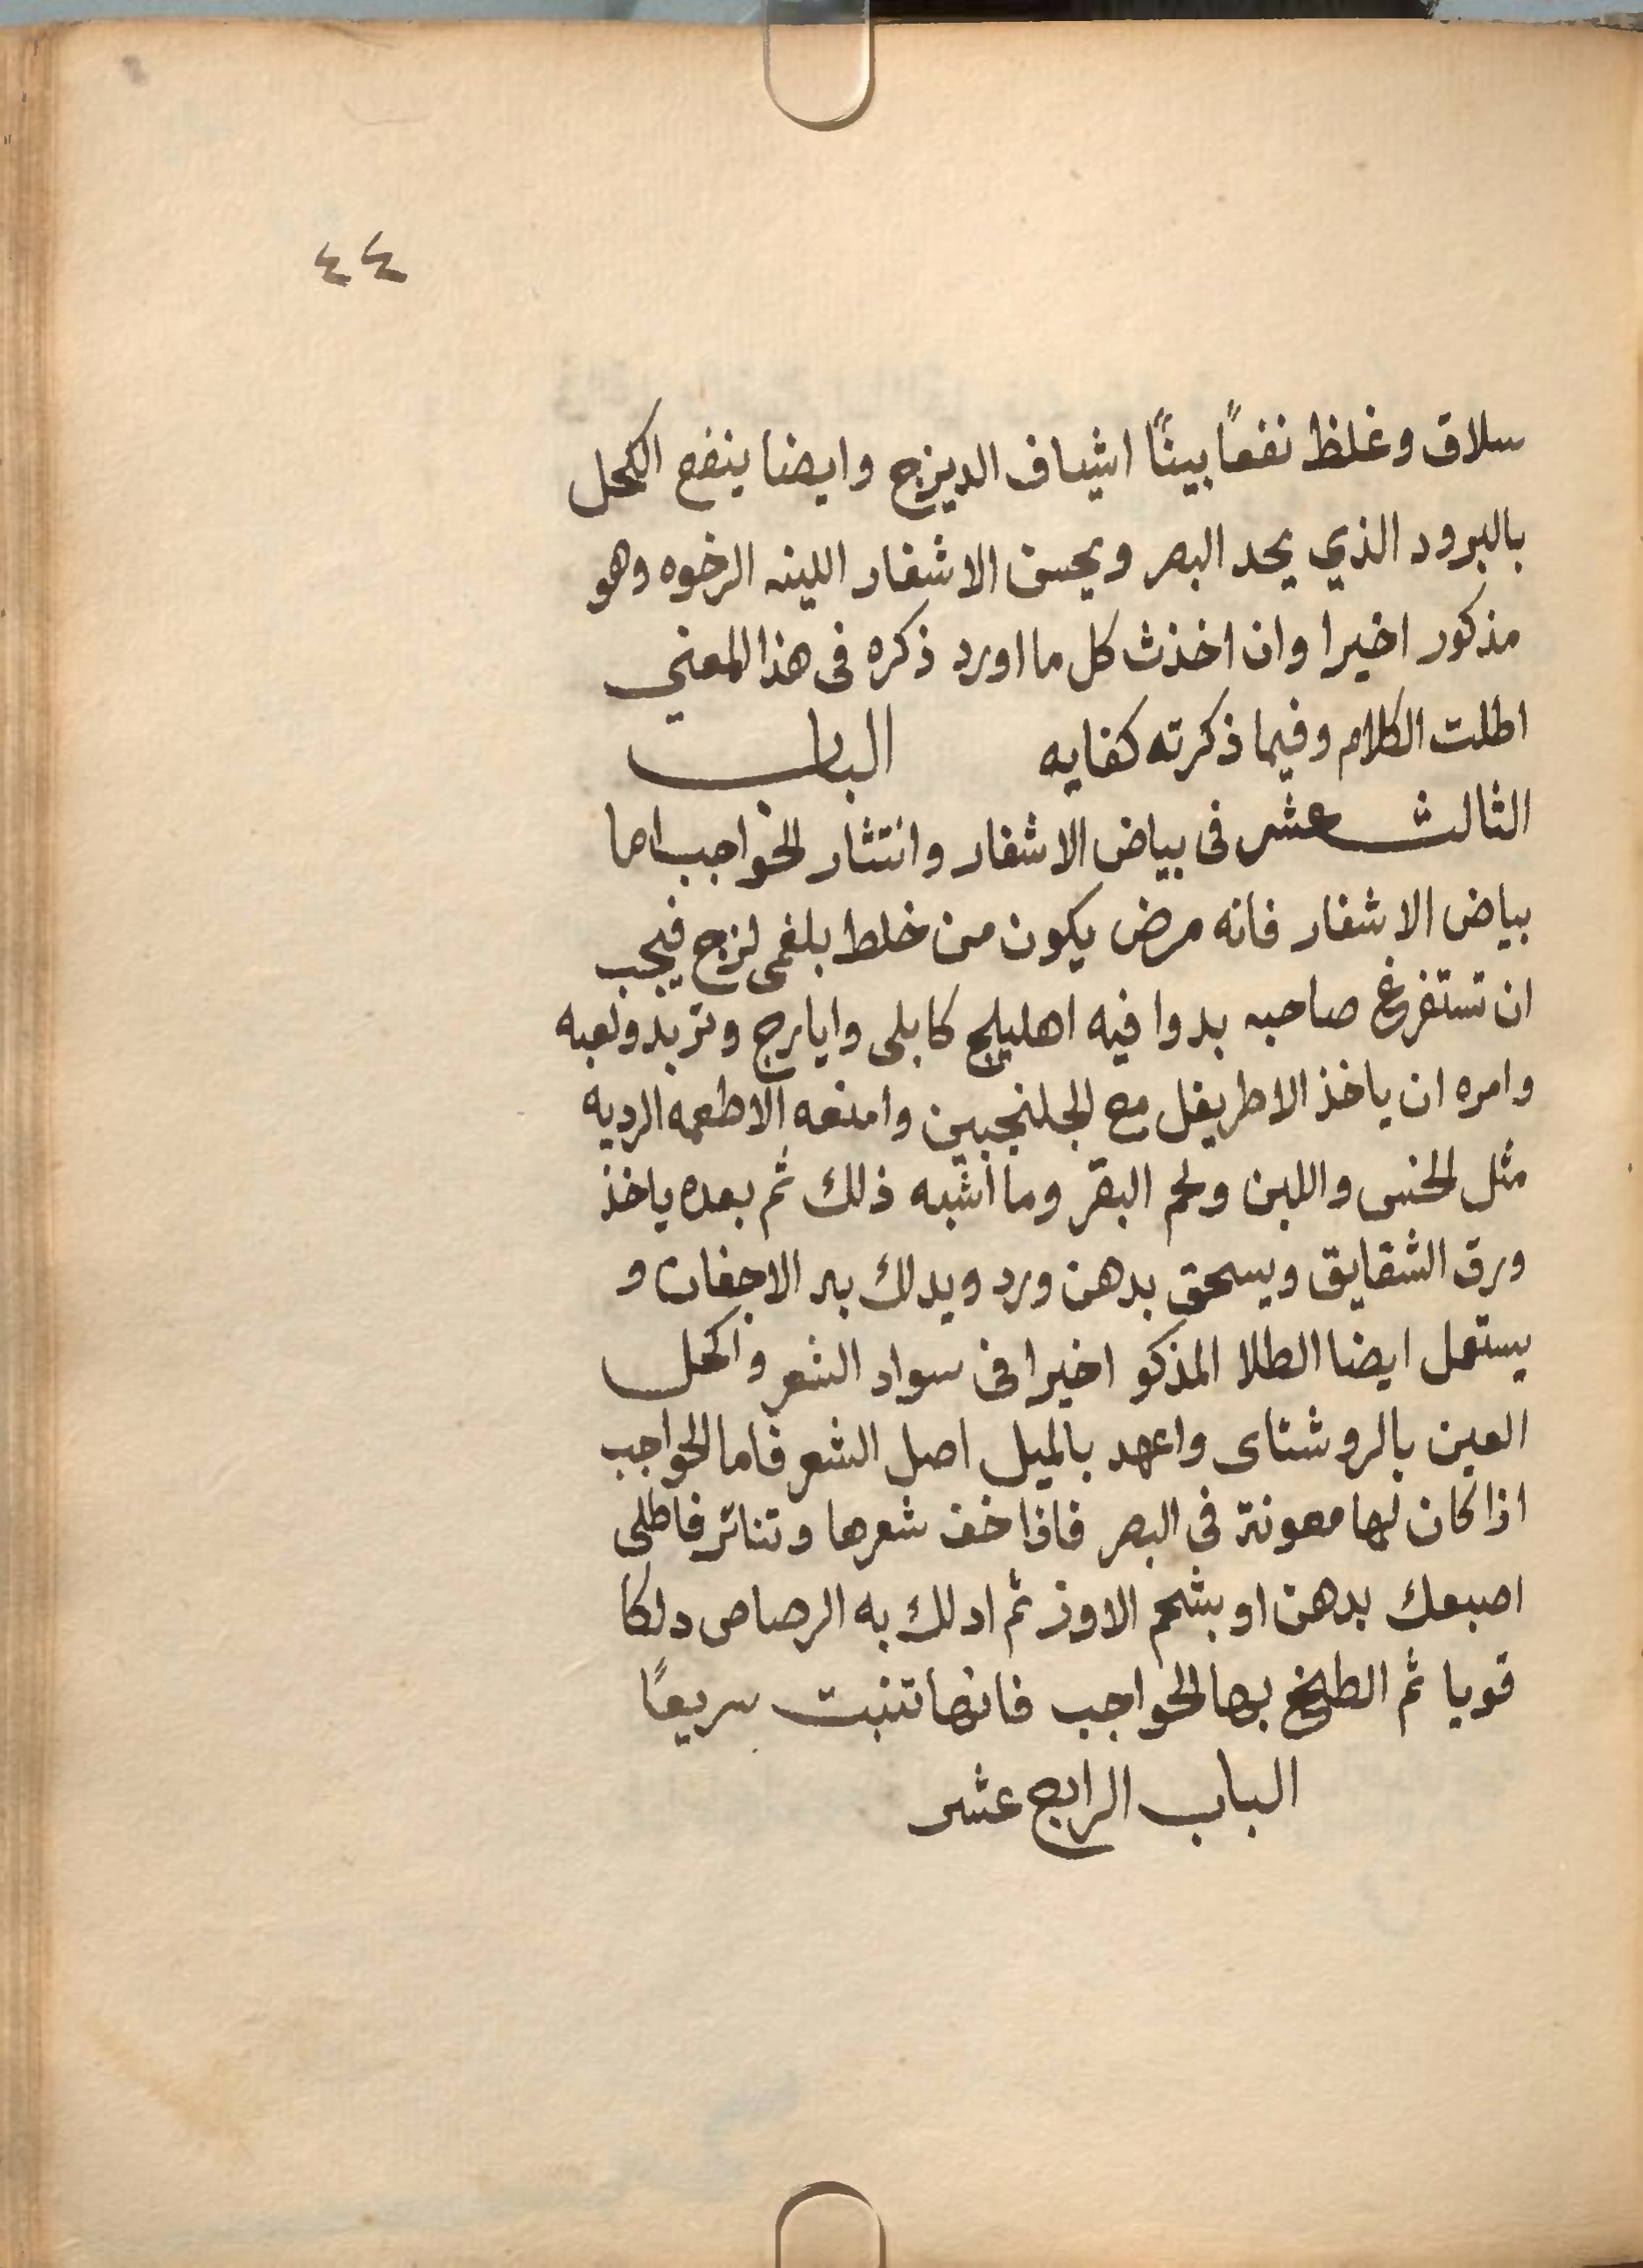 ٤٤
سلاق وغلظ نفعاً بينًا اشياف الديزج وايضا ينفع الكحل
بالبرود الذي يحد البصر ويحسن الاشفار اللينه الرخوه وهو
مذكور اخيرا وان اخذت كل ما اورد ذكره فى هذا المعني
اطلت الكلام وفيما ذكرته كفايه الباب
الثالث عشر فى بياض الاشفار وانتثار الحواجب اما
بياض الاشفار فانه مرض يكون من خلط بلغمى لزج فيجب
ان تستفرغ صاحبه بدوا فيه اهليلج كابلى وايارج وتربد
وامره ان ياخذ الاطريفل مع الجلنجبين وامنعه الاطعمه الرديه
مثل الخس واللبن ولحم البقر وما اشبه ذلك ثم بعده ياخذ
ورق الشقايق ويسحق بدهن ورد ويدلك به الاجفان و
يستعمل ايضا الطلا المذكو اخيرا فى سواد الشعر واكحل
العين بالروشناى واعهد بالميل اصل الشعر فاما الحواجب
اذا كان لها معونة فى البصر فاذا خف شعرها وتناثر فاطلى
اصبعك بدهن او بشحم الاوز ثم ادلك به الرصاص دلكا
قويا ثم الطخ بها الحواجب فانها تنبت سريعًا
الباب الرابع عشر